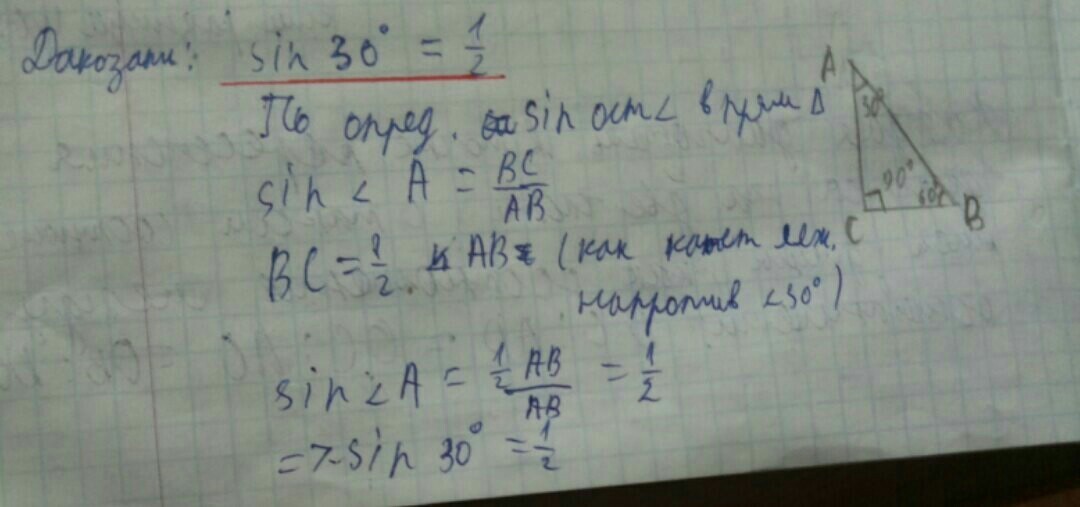 Дакозати: sin 30° = 1/2
По опред. sin ост < в прям Δ
sin < A = BC/AB
BC = 1/2 AB (как катет леж.
напротив < 30°)
sin < A = 1/2 AB/AB = 1/2
=> sin 30° = 1/2
A
30°
90°
60°
C
B